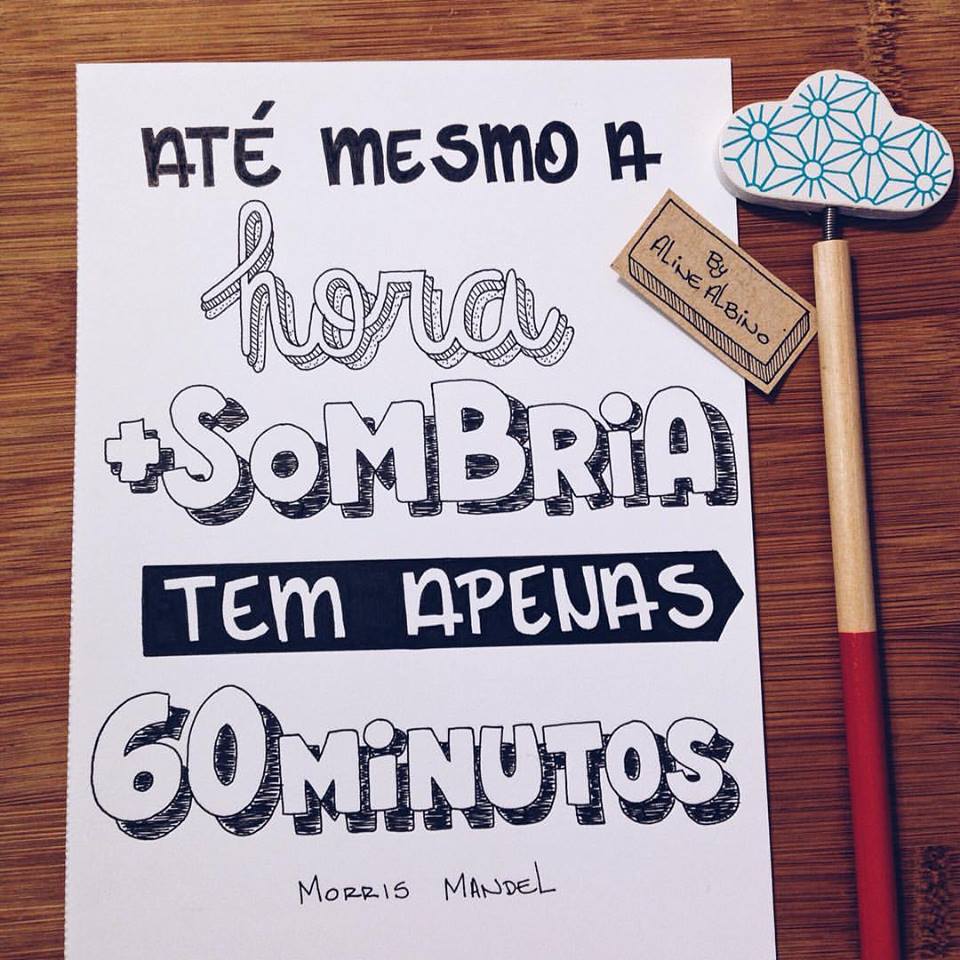 ATÉ MESMO A
hora
+SOMBRiA
TEM APENAS
60MiNUTOS
MORRIS MANDEL
By
ALINE ALBINO